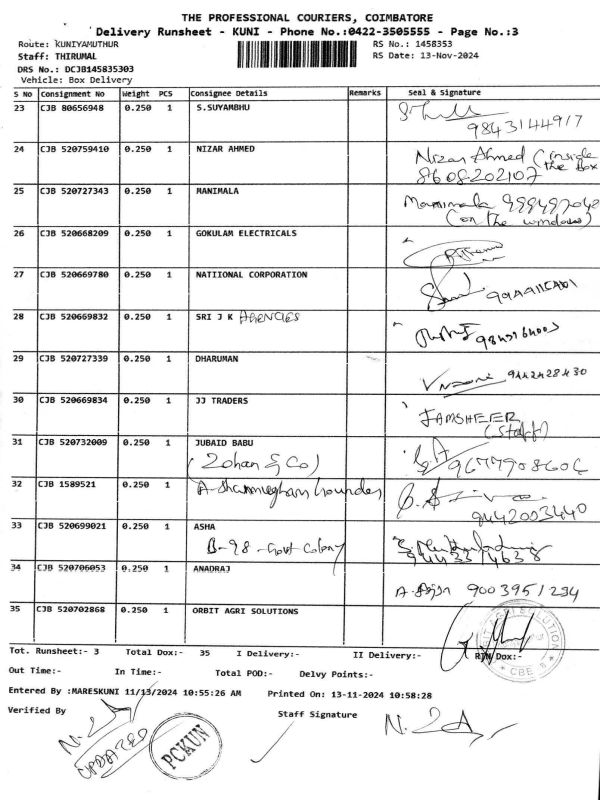 THE PROFESSIONAL COURIERS, COIMBATORE
Delivery Runsheet - KUNI - Phone No.:0422-3505555 - Page No.:3
Route: KUNIYAMUTHUR RS No.: 1458353
Staff: THIRUMAL RS Date: 13-Nov-2024
DRS No.: DCJB145835303
Vehicle: Box Delivery
S No Consignment No Weight PCS Consignee Details Remarks Seal & Signature
23 CJB 80656948 0.250 1 S.SUYAMBHU
9843144917
24 CJB 520759410 0.250 1 NIZAR AHMED Nizar Ahmed (inside the Box
8608202107
25 CJB 520727343 0.250 1 MANIMALA Manimala
(on the window)
26 CJB 520668209 0.250 1 GOKULAM ELECTRICALS
27 CJB 520669780 0.250 1 NATIIONAL CORPORATION
28 CJB 520669832 0.250 1 SRI J K AGENCIES
29 CJB 520727339 0.250 1 DHARUMAN 9442428430
30 CJB 520669834 0.250 1 JJ TRADERS JAMSHEER
(Staff)
31 CJB 520732009 0.250 1 JUBAID BABU
(Zohan & Co) 9677908606
32 CJB 1589521 0.250 1 A. Shanmugham Gounder
9442003440
33 CJB 520699021 0.250 1 ASHA
B-98 - Govt Colony
34 CJB 520706053 0.250 1 ANADRAJ
9003951234
35 CJB 520702868 0.250 1 ORBIT AGRI SOLUTIONS
Tot. Runsheet:- 3 Total Dox:- 35 I Delivery:- II Delivery:- RTN Dox:-
CBE
Out Time:- In Time:- Total POD:- Delvy Points:-
Entered By :MARESKUNI 11/13/2024 10:55:26 AM Printed On: 13-11-2024 10:58:28
Verified By Staff Signature
UPDATED
PCKUN